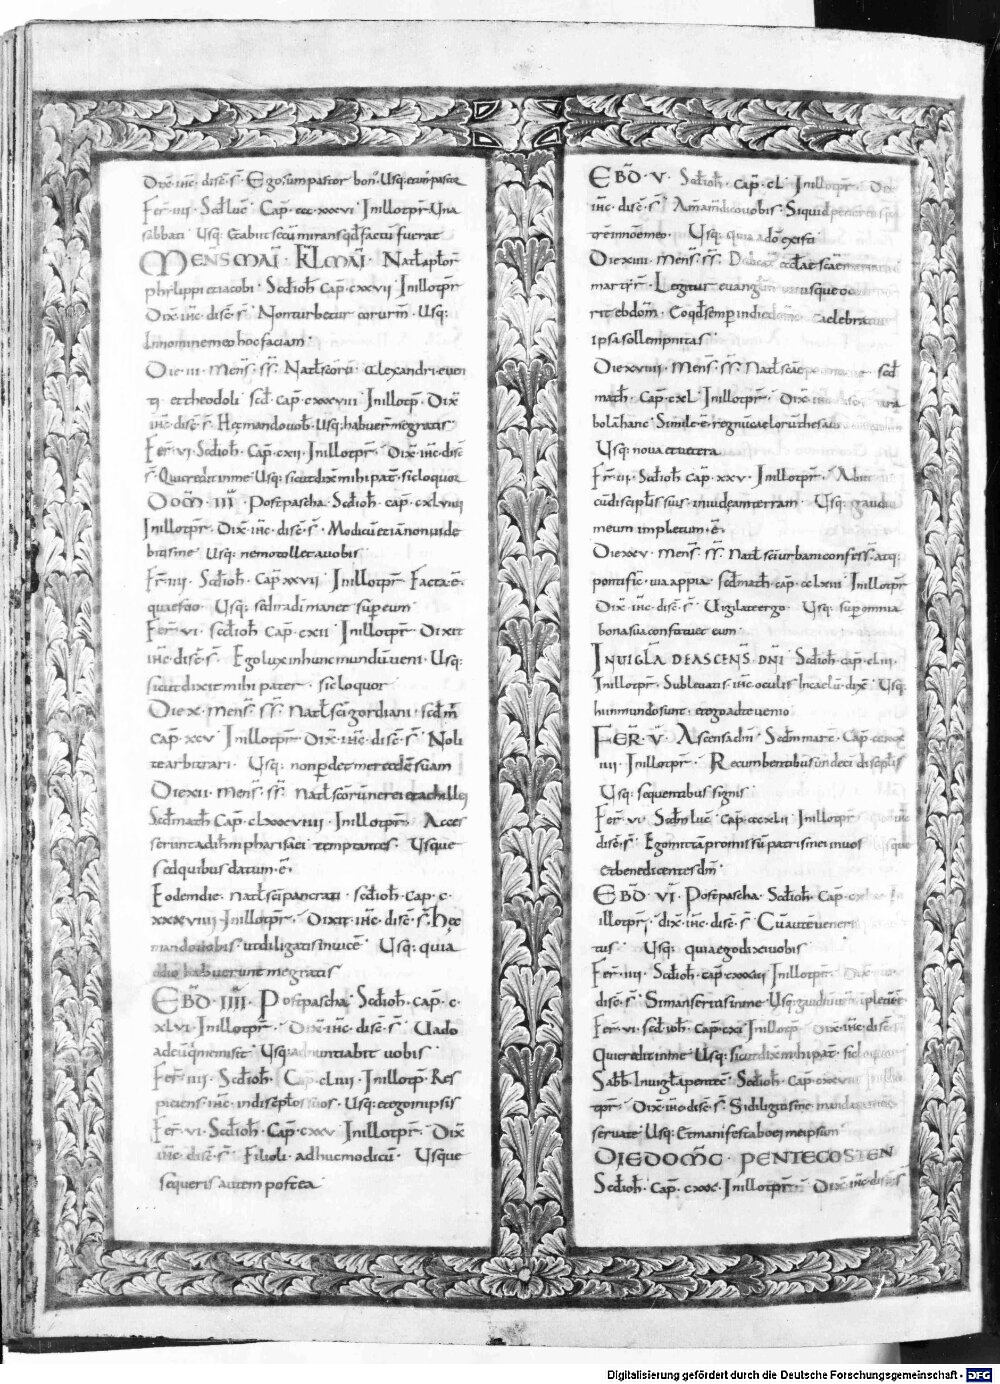 Dix̄ · ih̄c · disc̄ · s̄ · Ego sum pastor bon' · Usq̄ · et um̄ pastor
Fer̄ · iiii · Scd̄ luc̄ · Cap̄ · ccc · xxxvi · Inillotp̄r · Una
sabbati · Usq̄: Et abiit secū mirans qd̄ factū fuerat
MENS MAI · KL̄ MAI · Natl̄ aplor̄
philippi et iacobi · Scd̄ ioh̄ · Cap̄ · cxxvii · Inillotp̄r
Dix̄ · ih̄c · disc̄ · s̄ · Non turbetur cor ur̄m · Usq̄:
In nomine meo hoc faciam ·
Die · iii · mens̄ · ss̄ · Natl̄ scōrū · alexandri · even
ti · et theodoli · scd̄ · Cap̄ · cxxxviii · Inillotp̄ · Dix̄
ih̄c · disc̄ · s̄ · Hec mando vob̄ · Usq̄: habuer̄ me gratis
Fer̄ · vi · Scd̄ ioh̄ · Cap̄ · cxii · Inillotp̄r · Dix̄ · ih̄c · disc̄
s̄ · Qui credit in me · Usq̄: sicut dix̄ mihi pat̄ · sic loquor
DOM̄ · III · Post pascha · Scd̄ ioh̄ · cap̄ · cxlviii
Inillotp̄r · Dix̄ · ih̄c · disc̄ · s̄ · Modicū et iā non vide
bitis me · Usq̄: nemo tollet a vobis
Fr̄ · iiii · Scd̄ ioh̄ · Cap̄ xxvii · Inillotp̄r · Facta · ē ·
quaestio · Usq̄: sed ira di manet sup̄ eum
Fer̄ · vi · scd̄ ioh̄ · Cap̄ · cxii · Inillotp̄r · Dixit
ih̄c · disc̄ · s̄ · Ego lux in hunc mundū veni · Usq̄:
sicut dixit mihi pater · sic loquor
Die x · mens̄ · ss̄ · Natl̄ scī gordiani · scd̄ m̄
Cap̄ · xcv · Inillotp̄r · Dix̄ · ih̄c · disc̄ · s̄ · Noli
te arbitrari · Usq̄: non p̄det mercedē suam
Die xii · mens̄ · ss̄ · Natl̄ scōrū nerei et achillei
Scd̄ math̄ · Cap̄ · clxxxviiii · Inillotp̄r · Acces
serunt ad ih̄m pharisaei temptantes · Usque
sed quibus datum · ē ·
Eodem die · natl̄ scī pancrati · scd̄ ioh̄ · Cap̄ · c ·
xxxviiii · Inillotp̄r · Dixit · ih̄c · disc̄ · s̄ · Hec
mando vobis · ut diligatis invicē · Usq̄: quia
odio habuerunt me gratis
EBD̄ · IIII · Post pascha · Scd̄ ioh̄ · Cap̄ · c ·
xlvi · Inillotp̄r · Dix̄ · ih̄c · disc̄ · s̄ · Vado
ad eū q̄ me misit · Usq̄: adnuntiabit vobis
Fer̄ · iiii · Scd̄ ioh̄ · Cap̄ · cliiii · Inillotp̄r · Res
piciens · ih̄c · in discipl̄os suos · Usq̄: et ego in ipsis
Fer̄ · vi · Scd̄ ioh̄ · Cap̄ · cxxv · Inillotp̄r · Dix̄
ih̄c · disc̄ · s̄ · Filioli · adhuc modicū · Usque
sequeris autem postea ·
EBD̄ · V · Scd̄ ioh̄ · cap̄ · cl · Inillotp̄r · Dix̄
ih̄c · disc̄ · s̄ · Am̄ am̄ dico vobis · Siquid petieritis pa
trē in noē meo · Usq̄: quia a dō existi
Die xiii · mens̄ · ss̄ · Dedicat̄ eccl̄ae scāe mariae
martyr̄ · Legitur evangl̄iū
rit ebdom̄ · Eo qd̄ semp̄ in die dom̄ · caelebratur
ipsa sollempnitas
Die xviii · mens̄ · ss̄ · Natl̄ scāe · scd̄
math̄ · Cap̄ · cxl · Inillotp̄r · Dix̄ · ih̄c · disc̄ · para
bolā hanc · Simile · ē · regnū caeloru thesauro
Usq̄: nova et vetera
Fr̄ · iii · Scd̄ ioh̄ · Cap̄ · xxv · Inillotp̄r · Abiit
cū discipl̄is suis · in iudeam terram · Usq̄: gaudiū
meum impletum · ē ·
Die xxv · mens̄ · ss̄ · Natl̄ scī urbani confess̄ · atq̄:
pontific̄ · via appia · scd̄ math̄ · cap̄ · cclxiii · Inillotp̄r
Dix̄ · ih̄c · disc̄ · s̄ · Vigilate ergo · Usq̄: sup̄ omnia
bona sua constituet eum ·
IN VIGL̄A DE ASCENS̄ · DN̄I · Scd̄ ioh̄ · cap̄ · cliii ·
Inillotp̄r · Sublevatis · ih̄c · oculis In caelū · dix̄ · Usq̄:
hi in mundo sunt · et ego ad te venio
FER̄ · V · Ascensa dn̄i · Scd̄ marc̄ · Cap̄ · ccxxx
iiii · Inillotp̄r · Recumbentibus undeci discipl̄is
Usq̄: sequentibus signis
Fer̄ · vi · Scd̄m luc̄ · cap̄ · cccxlii · Inillotp̄r
disc̄ · s̄ · Ego mittā promissū patris mei in vos · Usque
et benedicentes dm̄
EBD̄ · VI · Post pascha · Scd̄ ioh̄ · Cap̄ · In
illotp̄r · dix̄ · ih̄c · disc̄ · s̄ · Cū autē venerit
tus · Usq̄: quia ego dixi vobis
Fer̄ · iiii · Scd̄ ioh̄ · cap̄ · cxxxiii · Inillotp̄r · Dix̄
disc̄ · s̄ · Si manseritis in me · Usq̄: gaudiū ur̄m ipletū ē
Fer̄ · vi · scd̄ ioh̄ · Cap̄ · cxi · Inillotp̄ · Dix̄ · ih̄c · disc̄ · s̄
Qui credit in me · Usq̄: sicut dix̄ mihi pat̄ · sic loquor
Sabb̄ · In vigl̄a pentec̄ · Scd̄ ioh̄ · cap̄ · cxxviiii · Inillo
tp̄r · Dix̄ · ih̄c · disc̄ · s̄ · Si diligitis me · mandata mea
servate · Usq̄: Et manifestabo ei me ipsum
DIE DOMC · PENTECOSTEN
Scd̄ ioh̄ · Cap̄ · cxxx · Inillotp̄r · Dix̄ · ih̄c · disc̄ · s̄
Digitalisierung gefördert durch die Deutsche Forschungsgemeinschaft - DFG